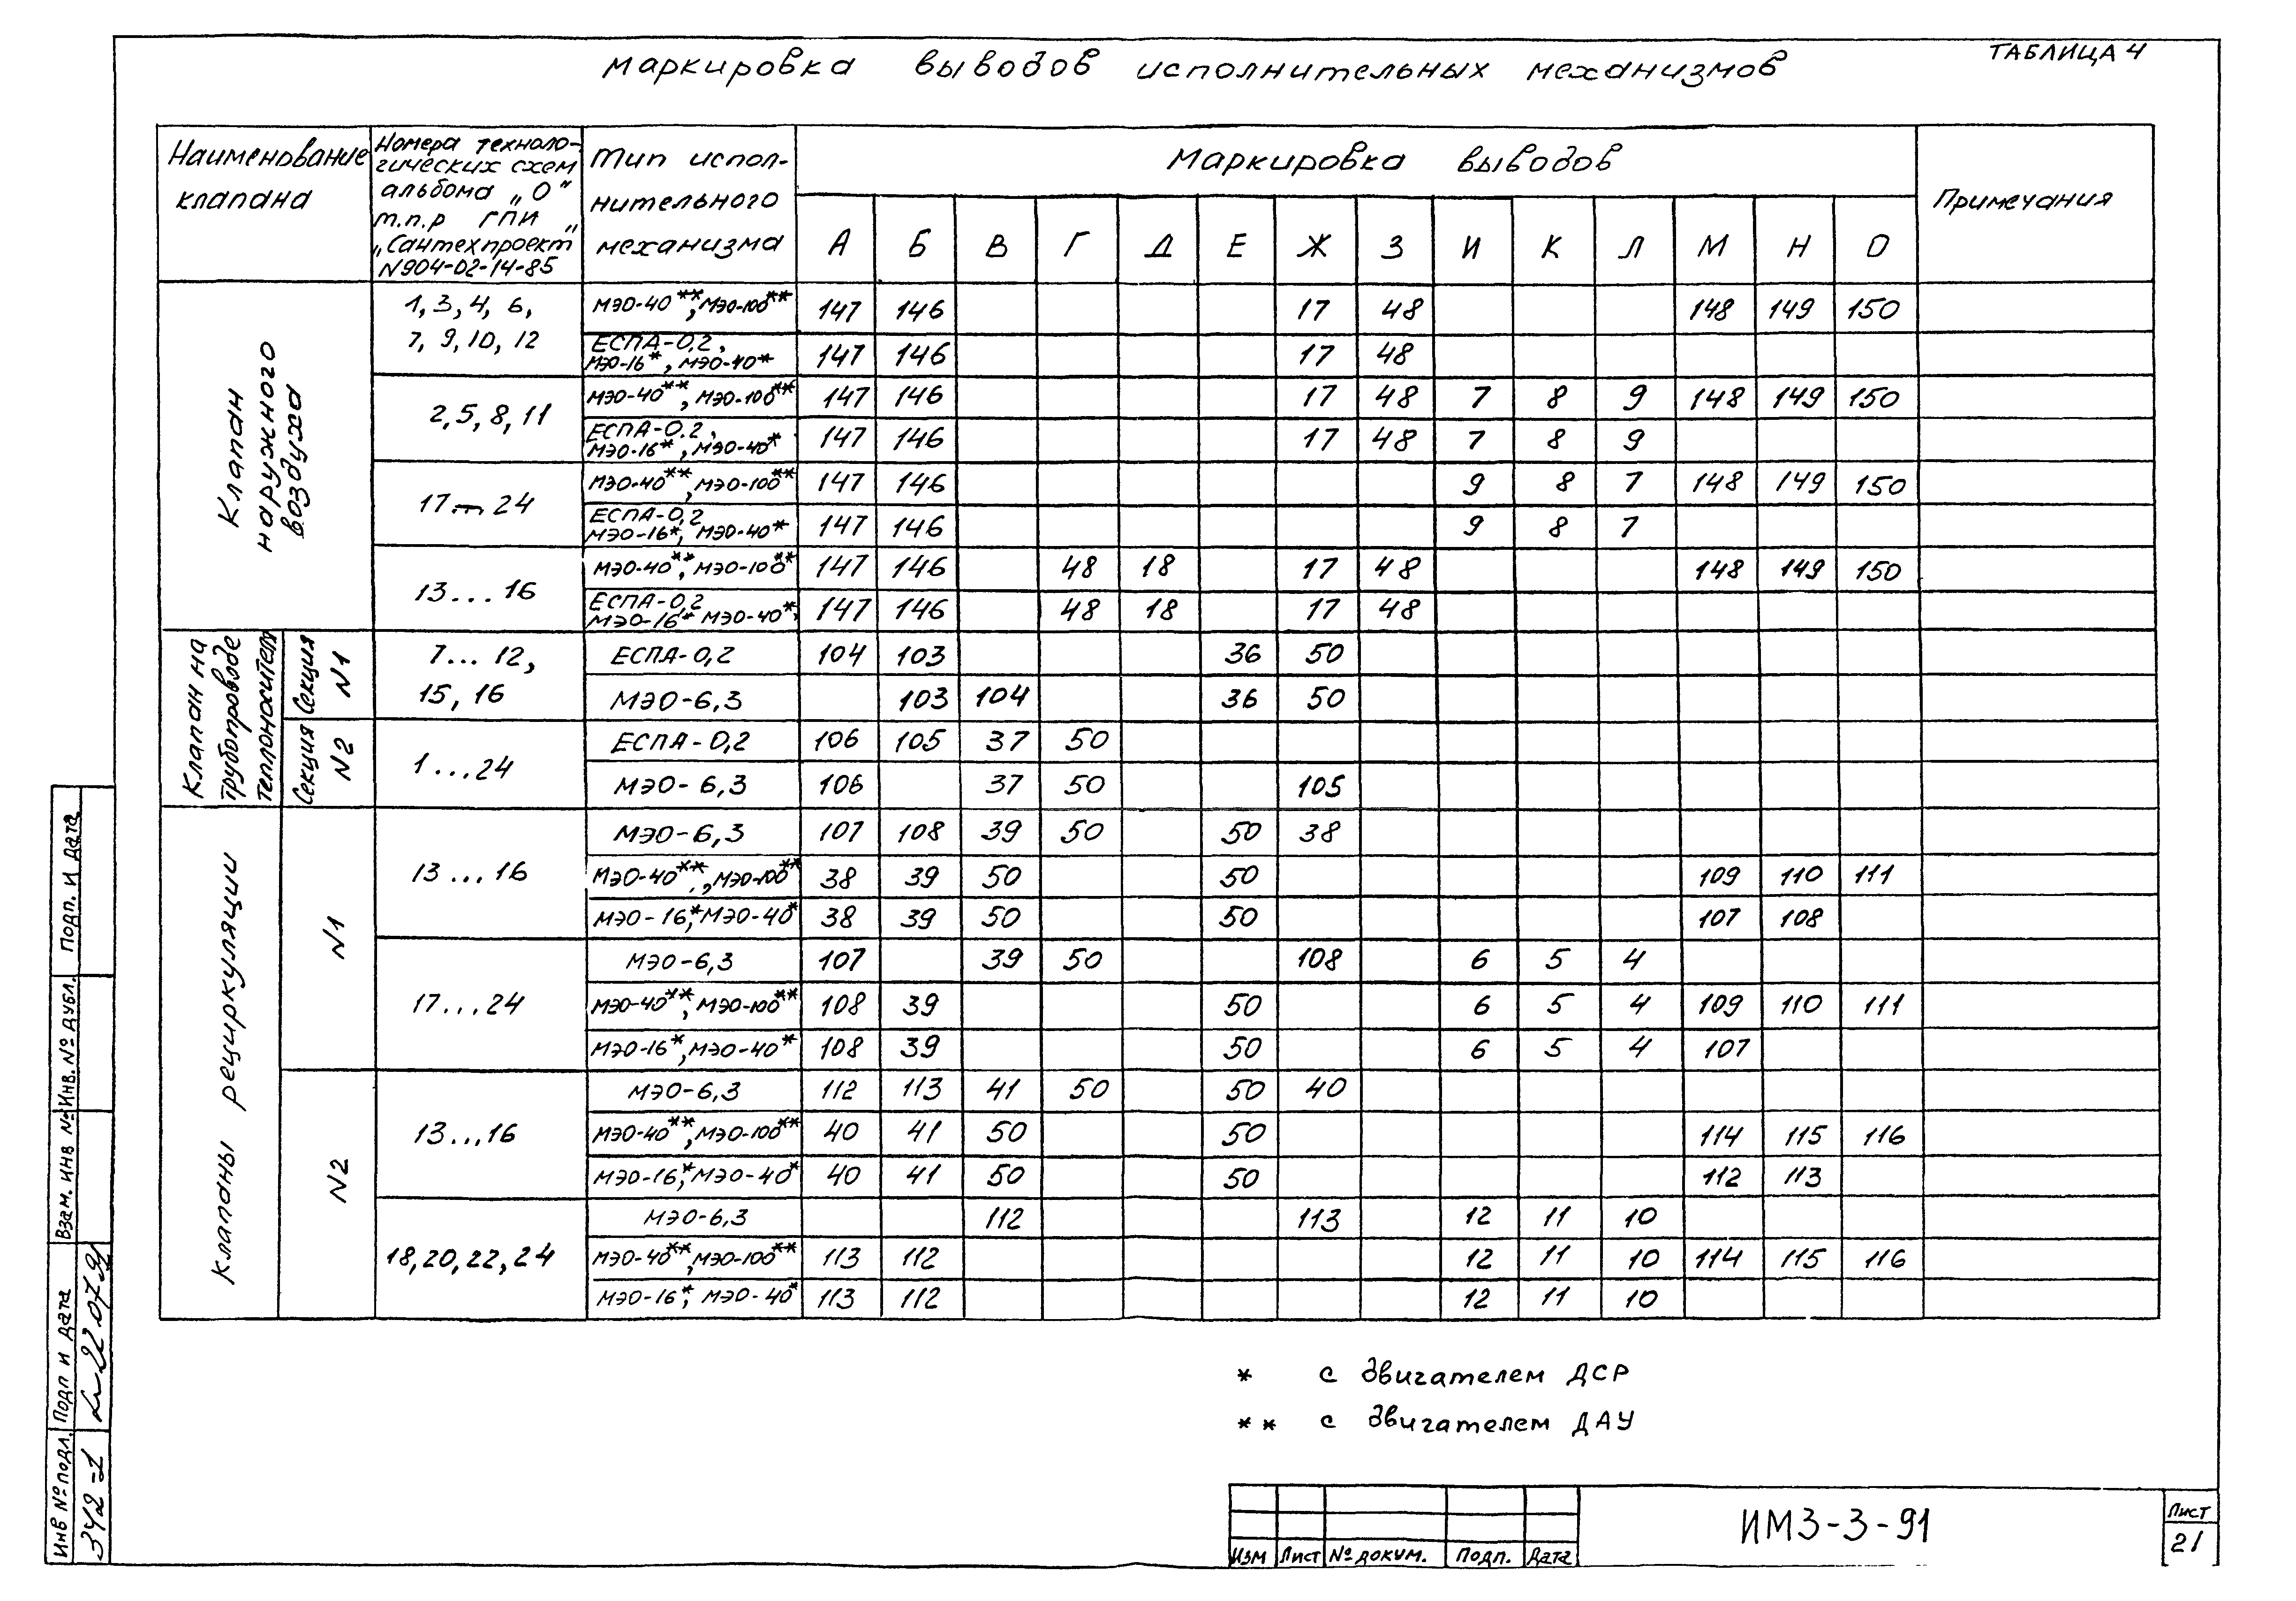 ТАБЛИЦА 4
Маркировка выводов исполнительных механизмов
Наименование клапана
Номера техноло-
гических схем
альбома „О“
т.п.р ГПИ „
„Сантехпроект
N904-02-14-85
Тип испол-
нительного
механизма
Маркировка выводов
Примечания
А Б В Г Д Е Ж З И К Л М Н О
Клапан наружного воздуха
1, 3, 4, 6,
7, 9, 10, 12
МЭО-40**, МЭО-100** 147 146 17 48 148 149 150
ЕСПА-0,2,
МЭО-16*, МЭО-40* 147 146 17 48
2, 5, 8, 11
МЭО-40**, МЭО-100** 147 146 17 48 7 8 9 148 149 150
ЕСПА-0.2,
МЭО-16*, МЭО-40* 147 146 17 48 7 8 9
17...24
МЭО-40**, МЭО-100** 147 146 9 8 7 148 149 150
ЕСПА-0,2
МЭО-16*, МЭО-40* 147 146 9 8 7
13...16
МЭО-40**, МЭО-100** 147 146 48 18 17 48 148 149 150
ЕСПА-0,2
МЭО-16* МЭО-40* 147 146 48 18 17 48
Клапан на трубопроводе теплоносителя
Секция N1
7...12,
15, 16
ЕСПА-0,2 104 103 36 50
МЭО-6,3 103 104 36 50
Секция N2
1...24
ЕСПА-0,2 106 105 37 50
МЭО-6,3 106 37 50 105
Клапаны рециркуляции
N1
13...16
МЭО-6,3 107 108 39 50 50 38
МЭО-40**, МЭО-100** 38 39 50 50 109 110 111
МЭО-16*, МЭО-40* 38 39 50 50 107 108
17...24
МЭО-6,3 107 39 50 108 6 5 4
МЭО-40**, МЭО-100** 108 39 50 6 5 4 109 110 111
МЭО-16*, МЭО-40* 108 39 50 6 5 4 107
N2
13...16
МЭО-6,3 112 113 41 50 50 40
МЭО-40**, МЭО-100** 40 41 50 50 114 115 116
МЭО-16*, МЭО-40* 40 41 50 50 112 113
18, 20, 22, 24
МЭО-6,3 112 113 12 11 10
МЭО-40**, МЭО-100** 113 112 12 11 10 114 115 116
МЭО-16*, МЭО-40* 113 112 12 11 10
* с двигателем ДСР
** с двигателем ДАУ
Изм Лист № докум. Подп. Дата
ИМ3-3-91
Лист
21
Подп. и дата
Инв. № дубл.
Взам. инв №
Подп и дата
22.07.91
Инв № подл.
342-1